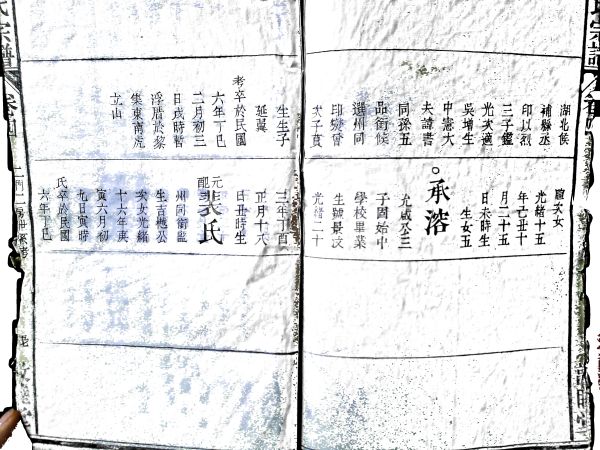 湖北候
補縣丞
印以烈
三子鑑
光次適
吳增生
中憲大
夫諱書
同孫五
品銜候
選州同
印燮曾
次子真
生生子
延翼
考卒於民國
六年丁巳
二月初三
日戌時暫
浮厝於黎
集東南虎
立山
誼次女
光緒十五
年己丑十
月二十五
日未時生
生女五
承溶
允咸公三
子固始中
學校畢業
生號景汶
光緒二十
三年丁酉
正月十六
日丑時生
元配裴氏
州同銜鑑
生吉懋公
次女光緒
十六年庚
寅六月初
九日寅時
氏卒於民國
六年丁巳